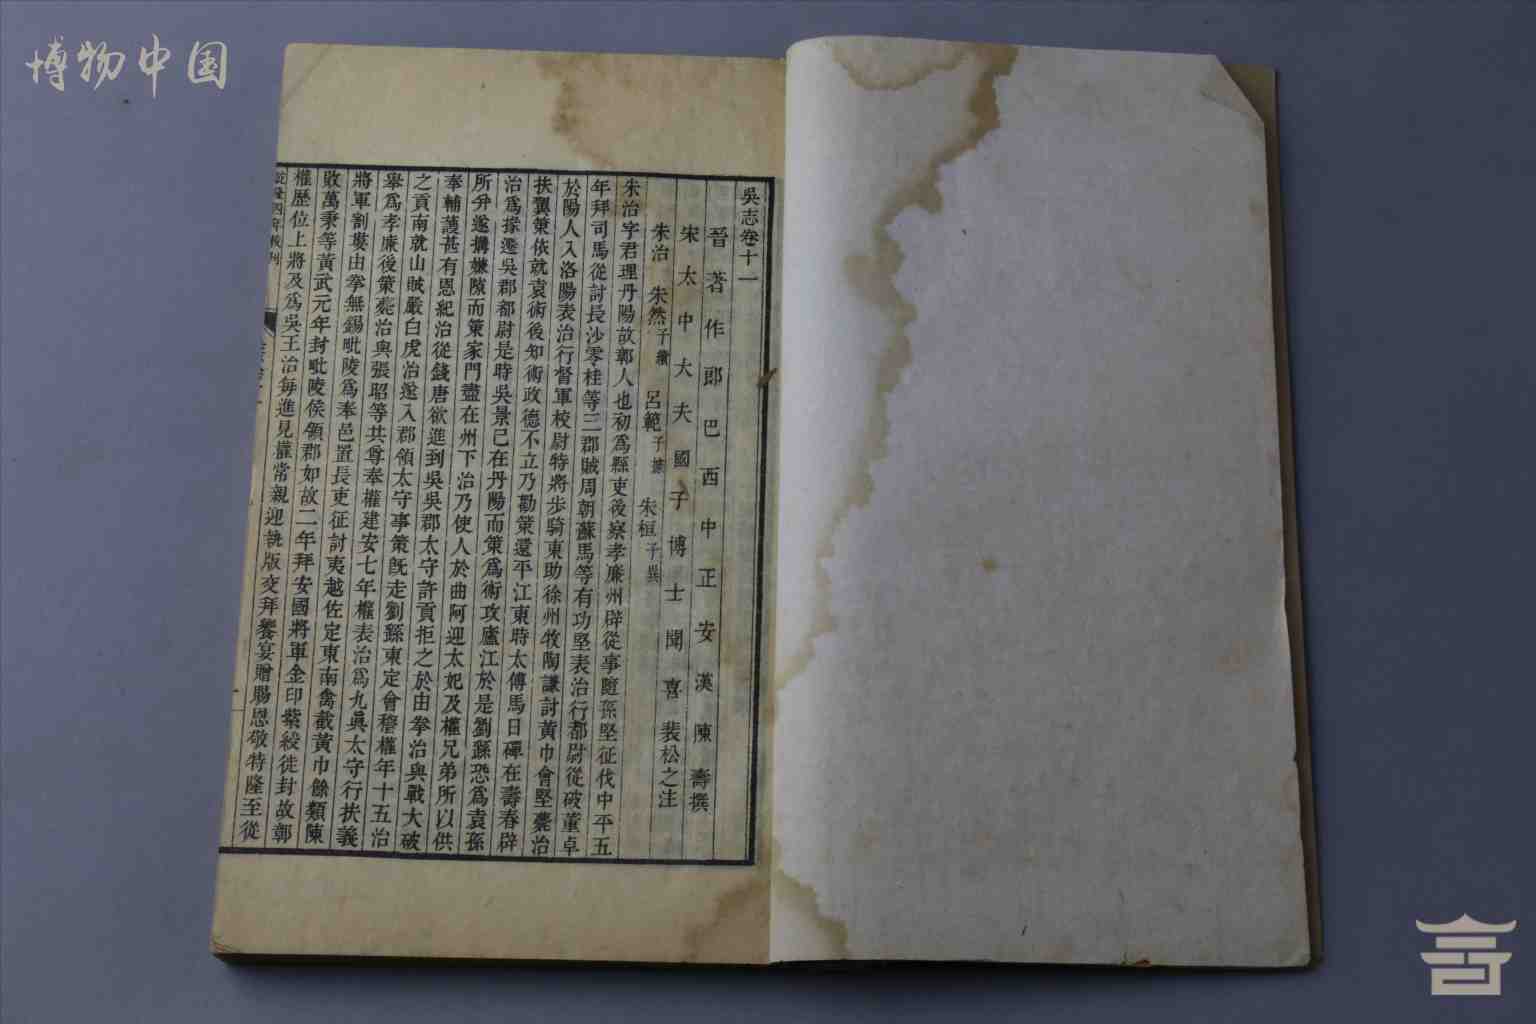 博物中国
吳志卷十一
晉著作郎巴西中正安漢陳壽撰
宋太中大夫國子博士聞喜裴松之注
朱治 朱然子績 呂範子據 朱桓子異
朱治字君理丹陽故鄣人也初爲縣吏後察孝廉州辟從事隨孫堅征伐中平五
年拜司馬從討長沙零桂等三郡賊周朝蘇馬等有功堅表治行都尉從破董卓
於陽人入洛陽表治行督軍校尉特將步騎東助徐州牧陶謙討黃巾會堅薨治
扶翼策依就袁術後知術政德不立乃勸策還平江東時太傅馬日磾在壽春辟
治爲掾遷吳郡都尉是時吳景已在丹陽而策爲術攻廬江於是劉繇恐爲袁孫
所幷遂搆嫌隙而策家門盡在州下治乃使人於曲阿迎太妃及權兄弟所以供
奉輔護甚有恩紀治從錢唐欲進到吳吳郡太守許貢拒之於由拳治與戰大破
之貢南就山賊嚴白虎治遂入郡領太守事策旣走劉繇東定會稽權年十五治
舉爲孝廉後策薨治與張昭等共尊奉權建安七年權表治爲九眞太守行扶義
將軍割婁由拳無錫毗陵爲奉邑置長吏征討夷越佐定東南禽截黃巾餘類陳
敗萬秉等黃武元年封毗陵侯領郡如故二年拜安國將軍金印紫綬徙封故鄣
權歷位上將及爲吳王治每進見權常親迎執版交拜饗宴贈賜恩敬特隆至從